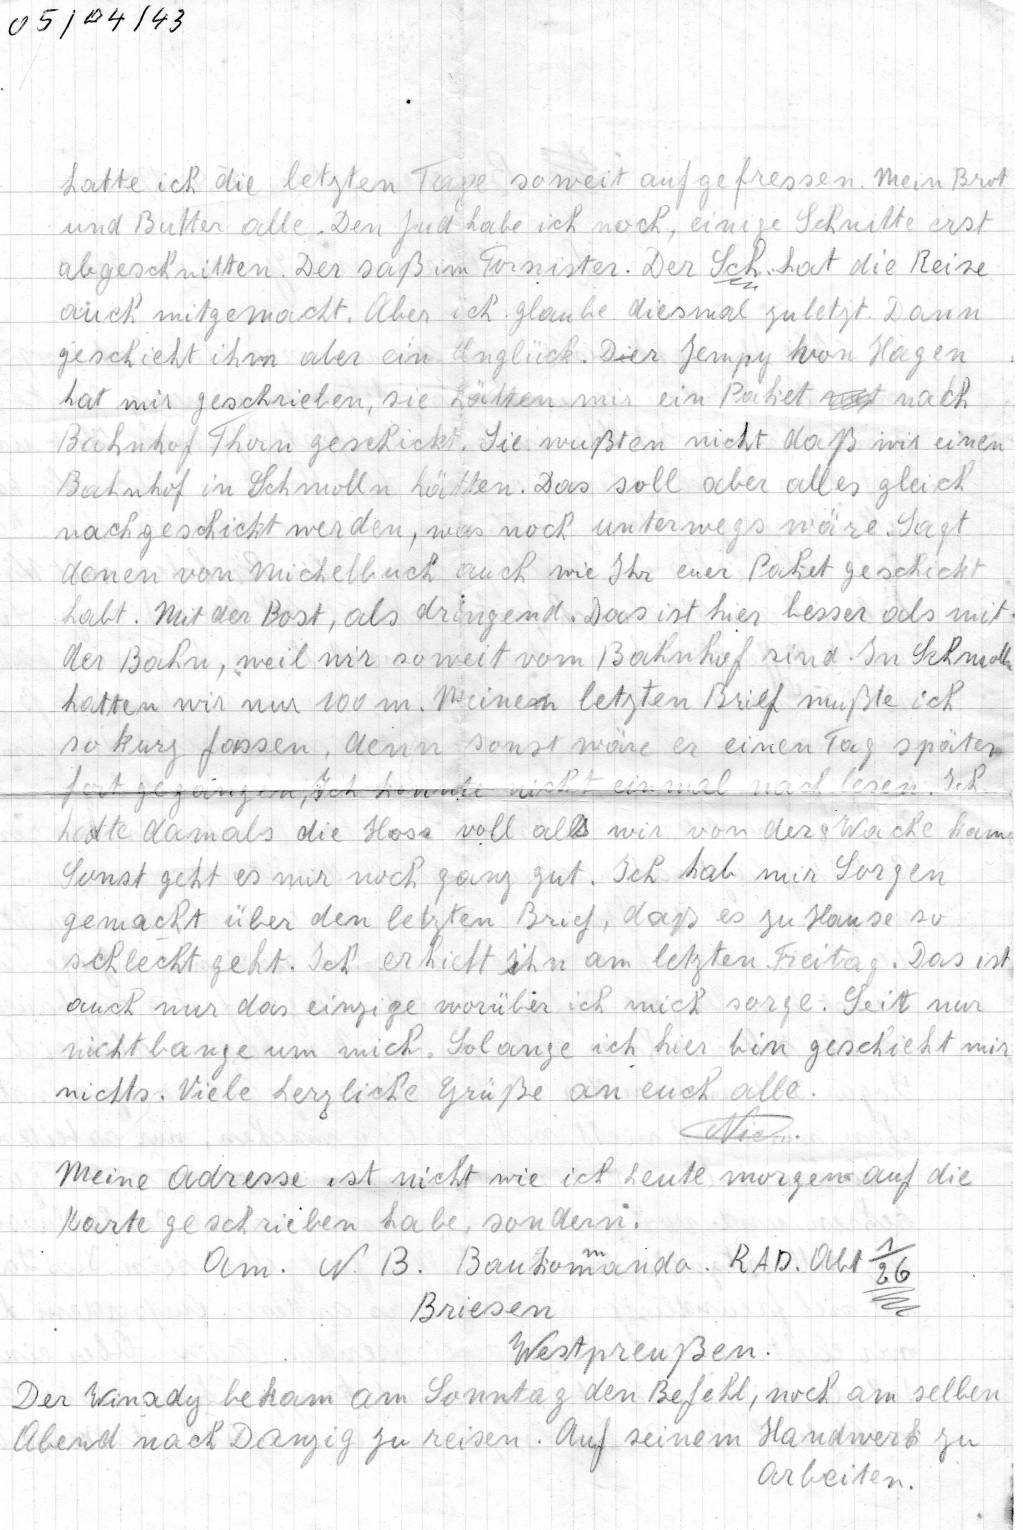 05/04/43
hatte ich die letzten Tage soweit aufgefressen. Mein Brot
und Butter alle. Den Jud habe ich noch, einige Schnitte erst
abgeschnitten. Der saß im Tornister. Der Sch. hat die Reise
auch mitgemacht. Aber ich glaube diesmal zuletzt. Dann
geschieht ihm aber ein Unglück. Der Jempy von Hagen
hat mir geschrieben, sie hätten mir ein Paket nach
Bahnhof Thorn geschickt. Sie wußten nicht daß wir einen
Bahnhof in Schmolln hätten. Das soll aber alles gleich
nachgeschickt werden, was noch unterwegs wäre. Sagt
denen von Michelbuch auch wie Ihr euer Paket geschickt
habt. Mit der Bost, als dringend. Das ist hier besser als mit
der Bahn, weil wir soweit vom Bahnhof sind. In Schmolln
hatten wir nur 100 m. Meinen letzten Brief mußte ich
so kurz fassen, denn sonst wäre er einen Tag später
fort gegangen, Ich konnte nicht einmal nach lesen. Ich
hatte damals die Hose voll als wir von der Wache kamen
Sonst geht es mir noch ganz gut. Ich hab mir Sorgen
gemacht über den letzten Brief, daß es zu Hause so
schlecht geht. Ich erhielt ihn am letzten Freitag. Das ist
auch nur das einzige worüber ich mich sorge. Seit nur
nicht bange um mich. Solange ich hier bin geschieht mir
nichts. Viele herzliche Grüße an euch alle.
Nic.
Meine Adresse ist nicht wie ich heute morgen auf die
Karte geschrieben habe, sondern.
Am. N. B. Baukommando. RAD. Abt 1/26
Briesen
Westpreußen.
Der bekam am Sonntag den Befehl, noch am selben
Abend nach Danzig zu reisen. Auf seinem Handwerk zu
arbeiten.